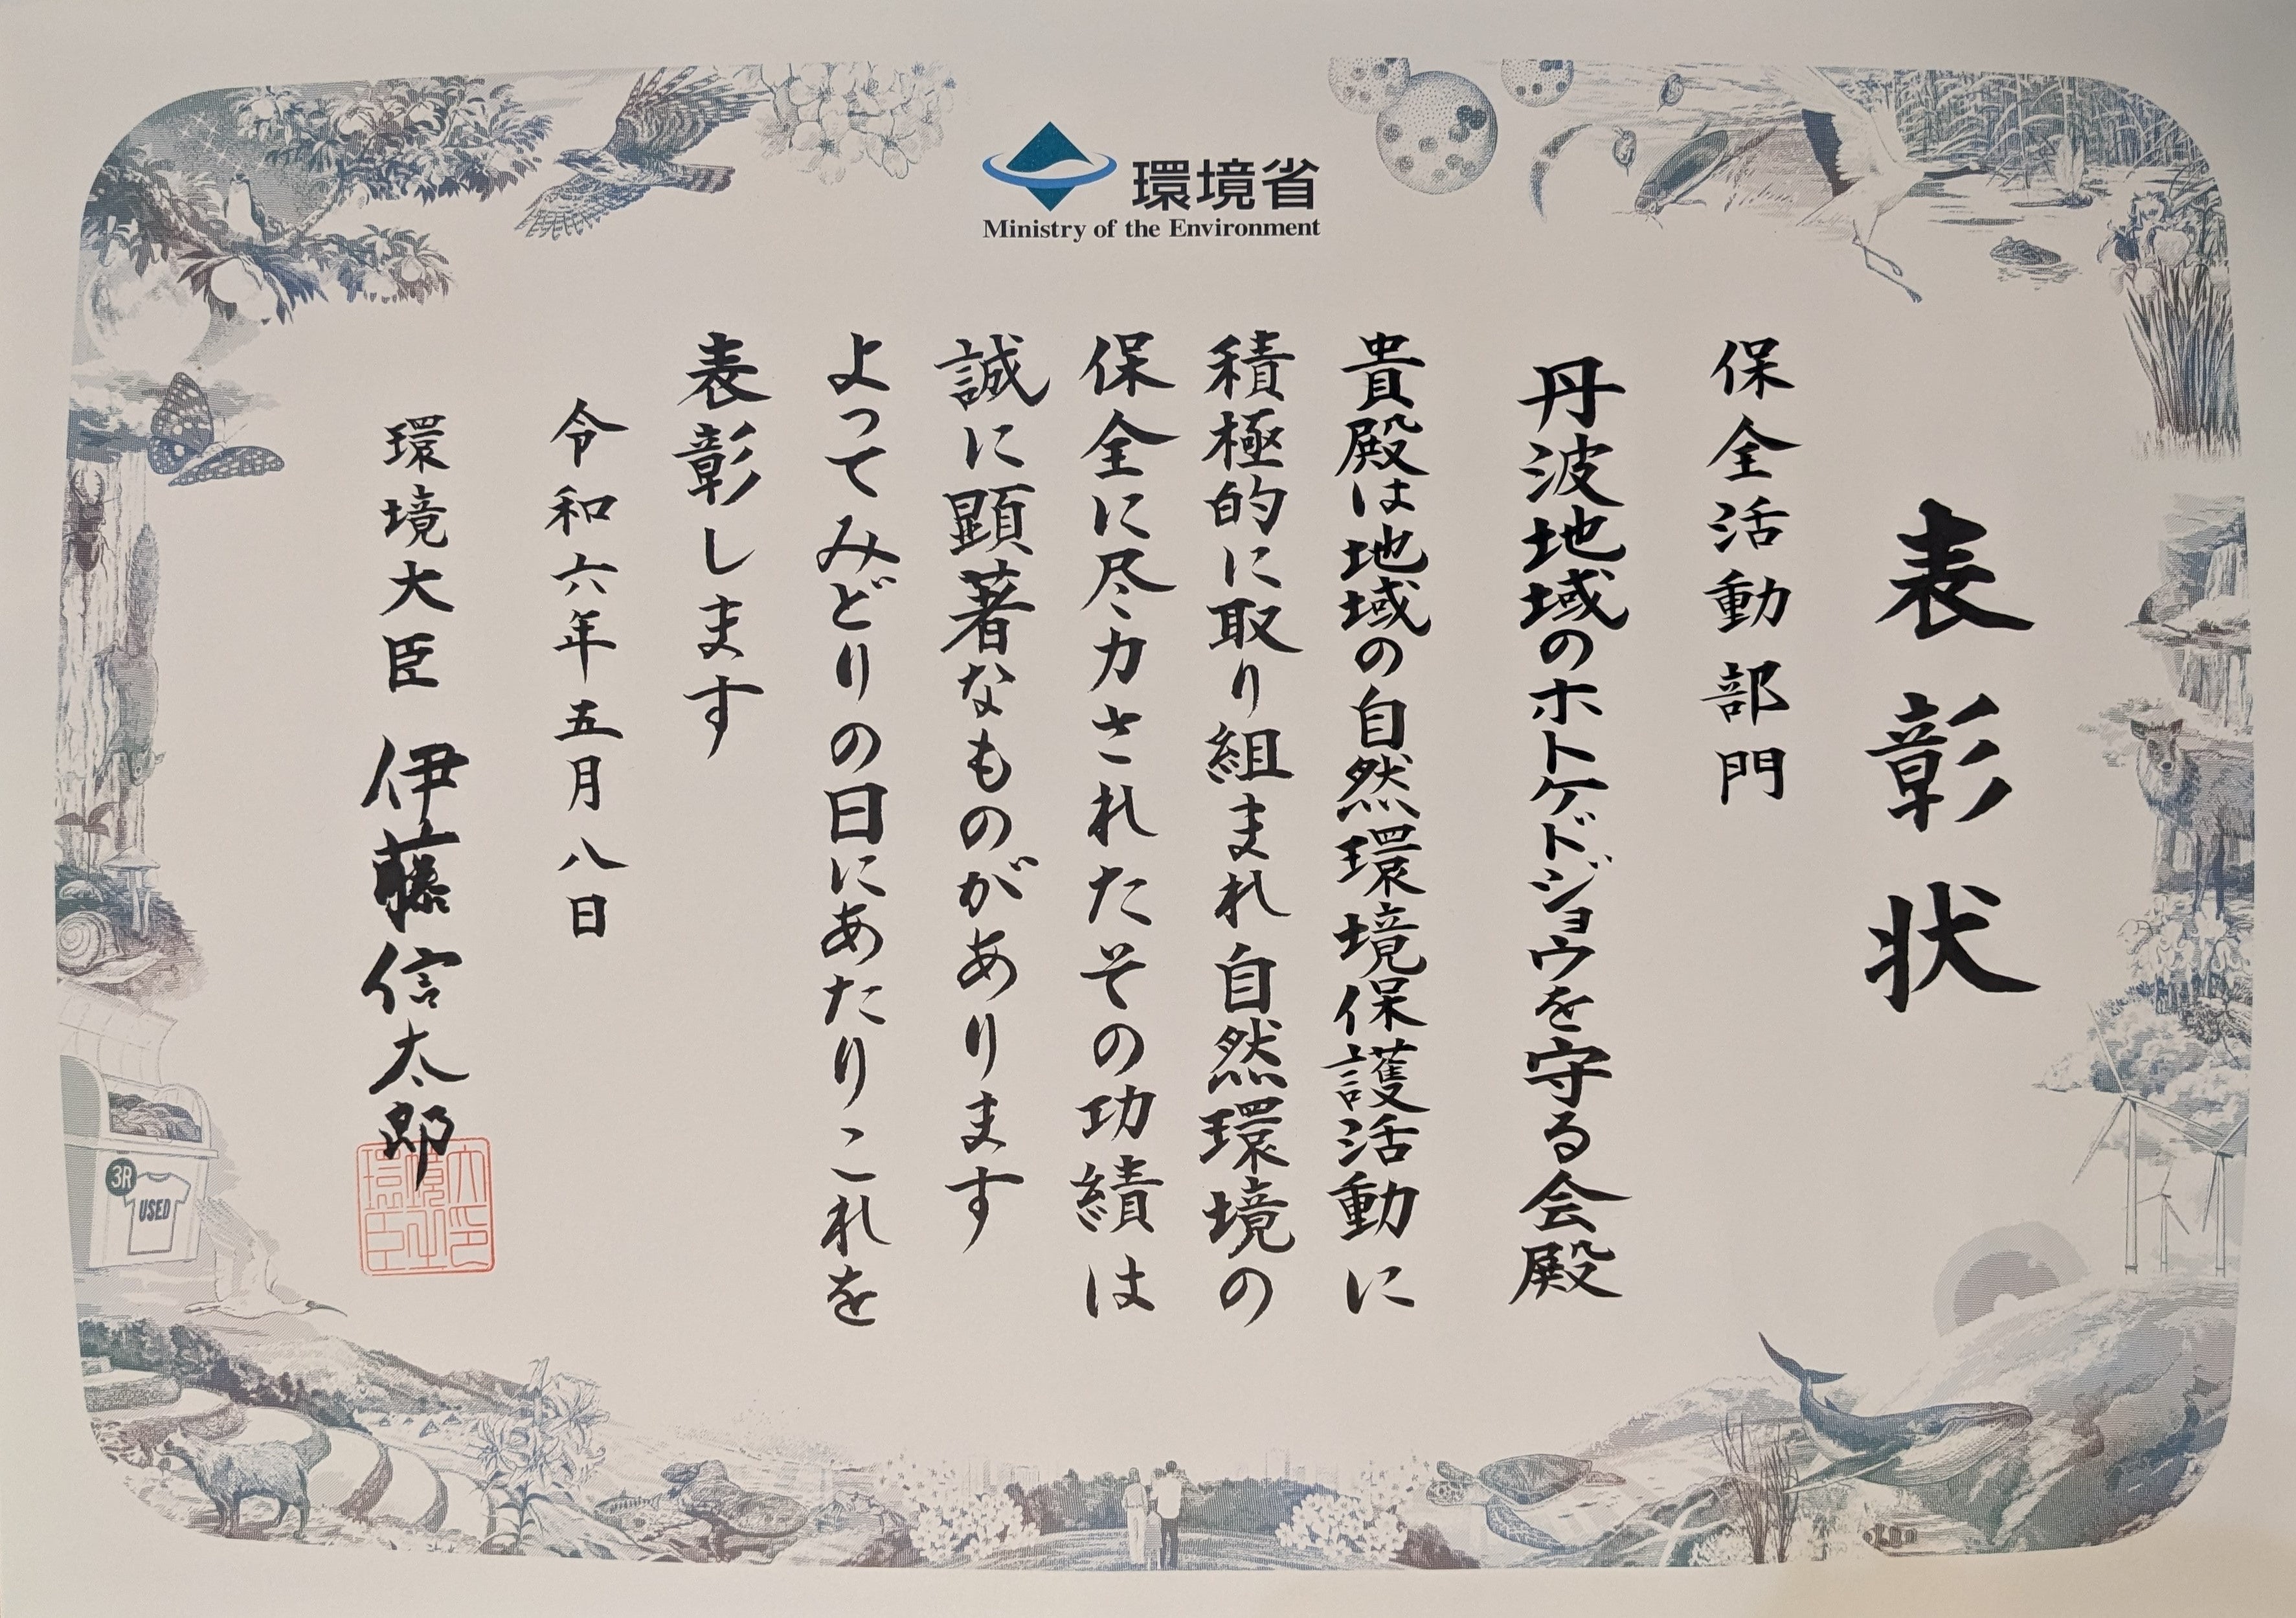 環境省
Ministry of the Environment
表彰状
保全活動部門
丹波地域のホトケドジョウを守る会殿
貴殿は地域の自然環境保護活動に
積極的に取り組まれ自然環境の
保全に尽力されたその功績は
誠に顕著なものがあります
よってみどりの日にあたりこれを
表彰します
令和六年五月八日
環境大臣 伊藤信太郎
環境大臣之印
3R
USED